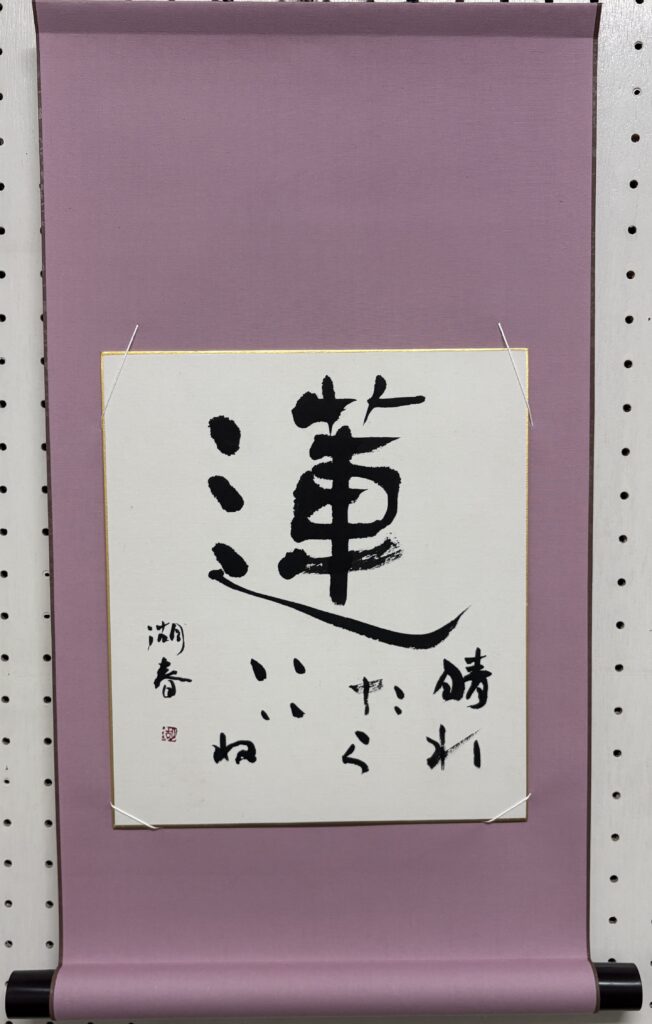 蓮
晴れ
たら
いいね
湖春